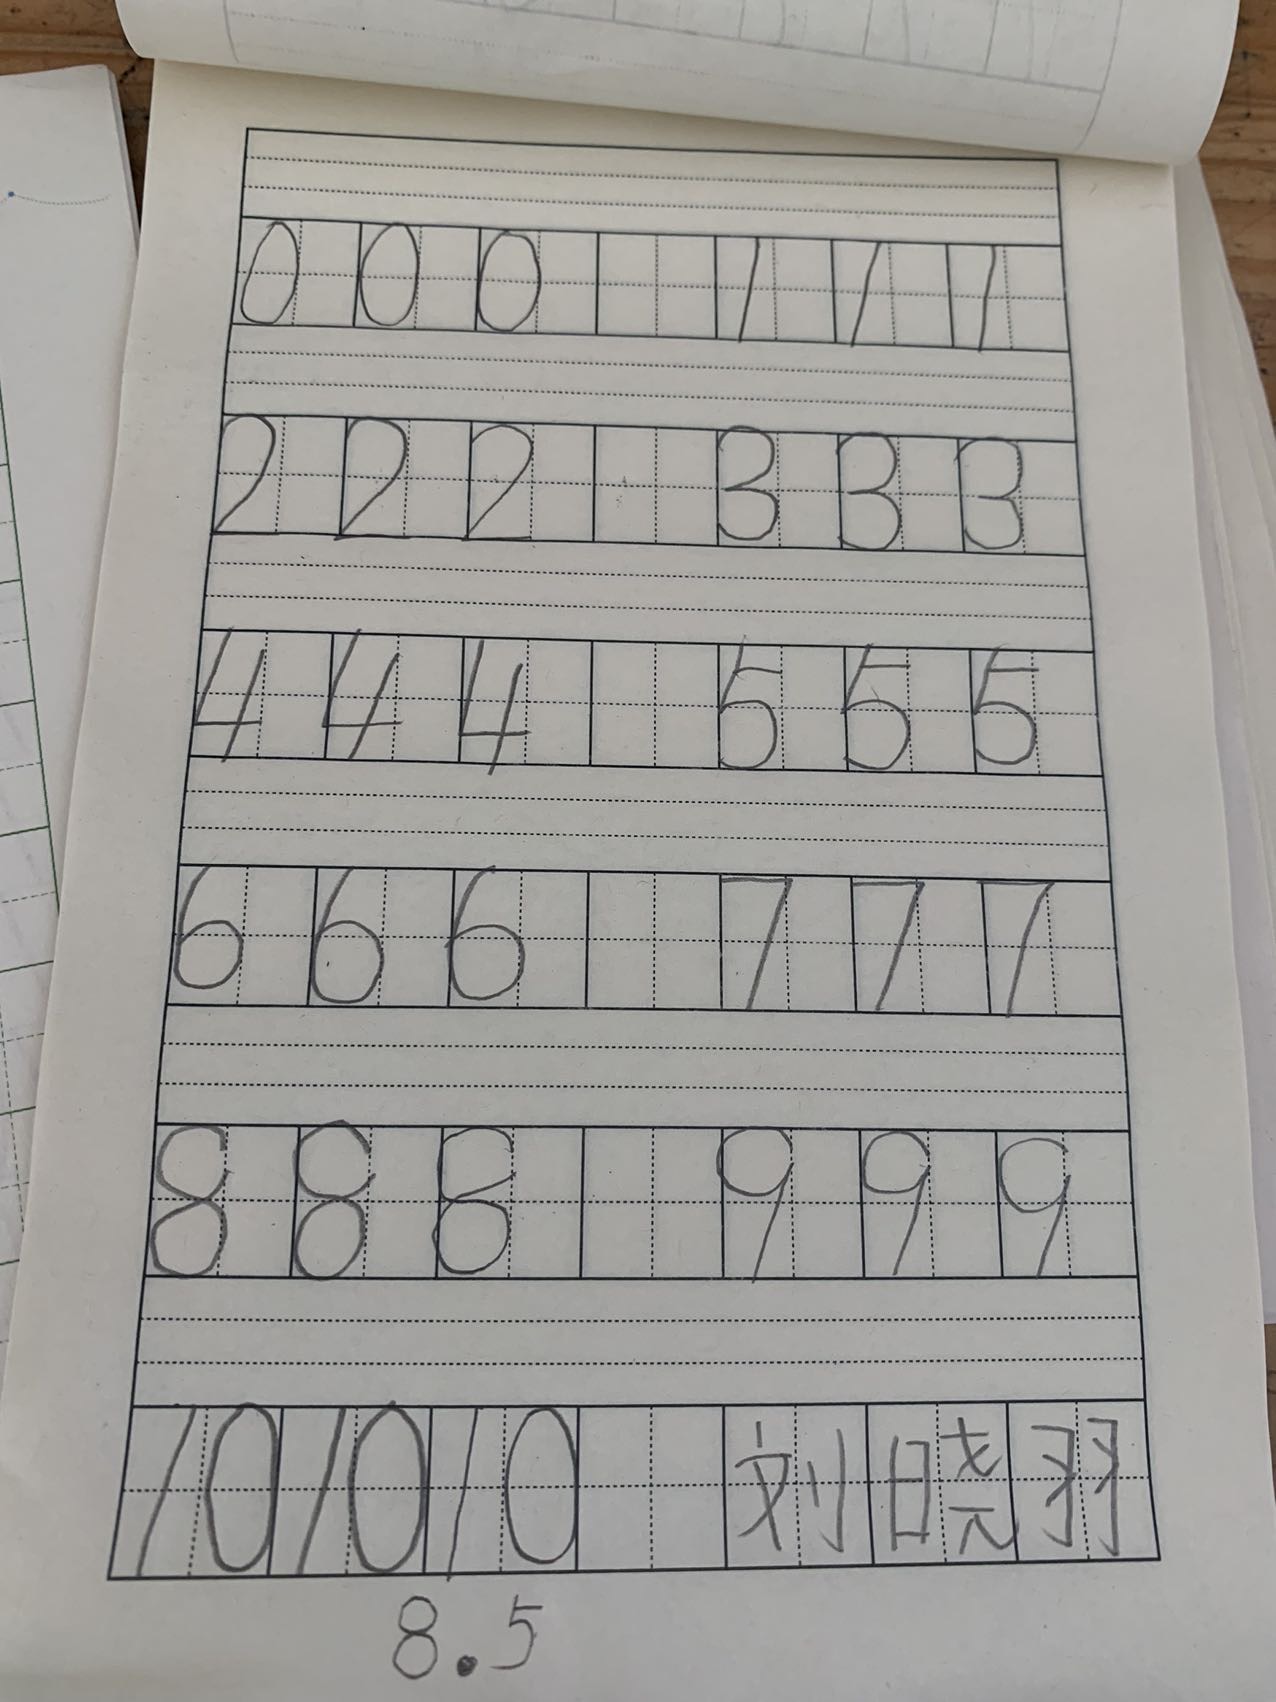 0 0 0 1 1 1
2 2 2 3 3 3
4 4 4 5 5 5
6 6 6 7 7 7
8 8 8 9 9 9
10 10 10 刘晓羽
8.5